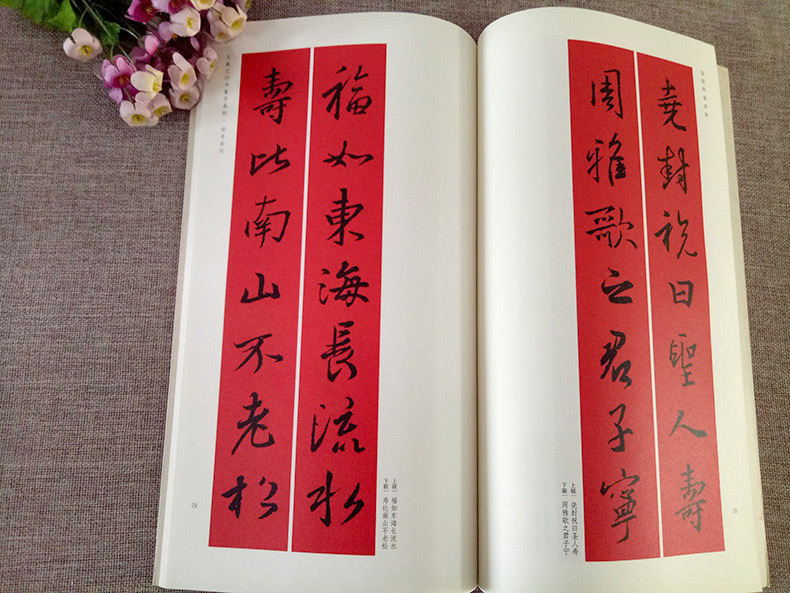 春联挥毫必备
堯封祝曰聖人壽
周雅歌之君子寧
上联｜尧封祝曰圣人寿
下联｜周雅歌之君子宁
福如東海長流水
壽比南山不老松
上联｜福如东海长流水
下联｜寿比南山不老松
28